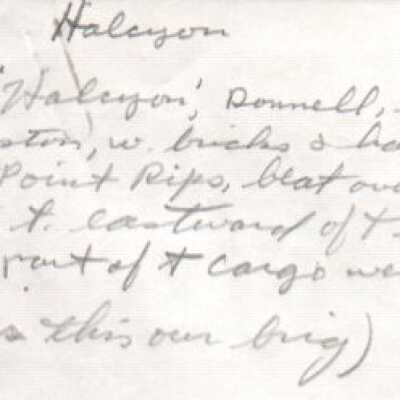 Halcyon
'Halcyon', Donnell,
ston, w. bricks & ha
Point Rips, beat ove
t. eastward of t
part of t cargo we
s this our brig)